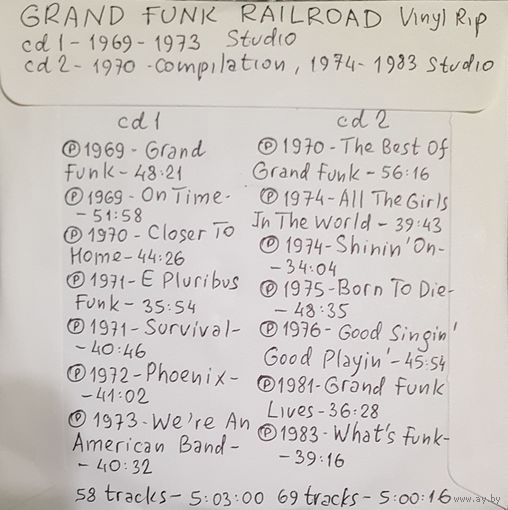 GRAND FUNK RAILROAD Vinyl Rip
cd1 - 1969 - 1973 Studio
cd2 - 1970 - compilation, 1974 - 1983 Studio
cd1
Ⓟ1969 - Grand
Funk - 48:21
Ⓟ1969 - On Time -
- 51:58
Ⓟ1970 - Closer To
Home - 44:26
Ⓟ1971 - E Pluribus
Funk - 35:54
Ⓟ1971 - Survival -
- 40:46
Ⓟ1972 - Phoenix -
- 41:02
Ⓟ1973 - We're An
American Band -
- 40:32
58 tracks - 5:03:00
cd2
Ⓟ1970 - The Best Of
Grand Funk - 56:16
Ⓟ1974 - All The Girls
In The World - 39:43
Ⓟ1974 - Shinin' On -
- 34:04
Ⓟ1975 - Born To Die -
- 48:35
Ⓟ1976 - Good Singin'
Good Playin' - 45:54
Ⓟ1981 - Grand Funk
Lives - 36:28
Ⓟ1983 - What's Funk -
- 39:16
69 tracks - 5:00:16
www.ay.by